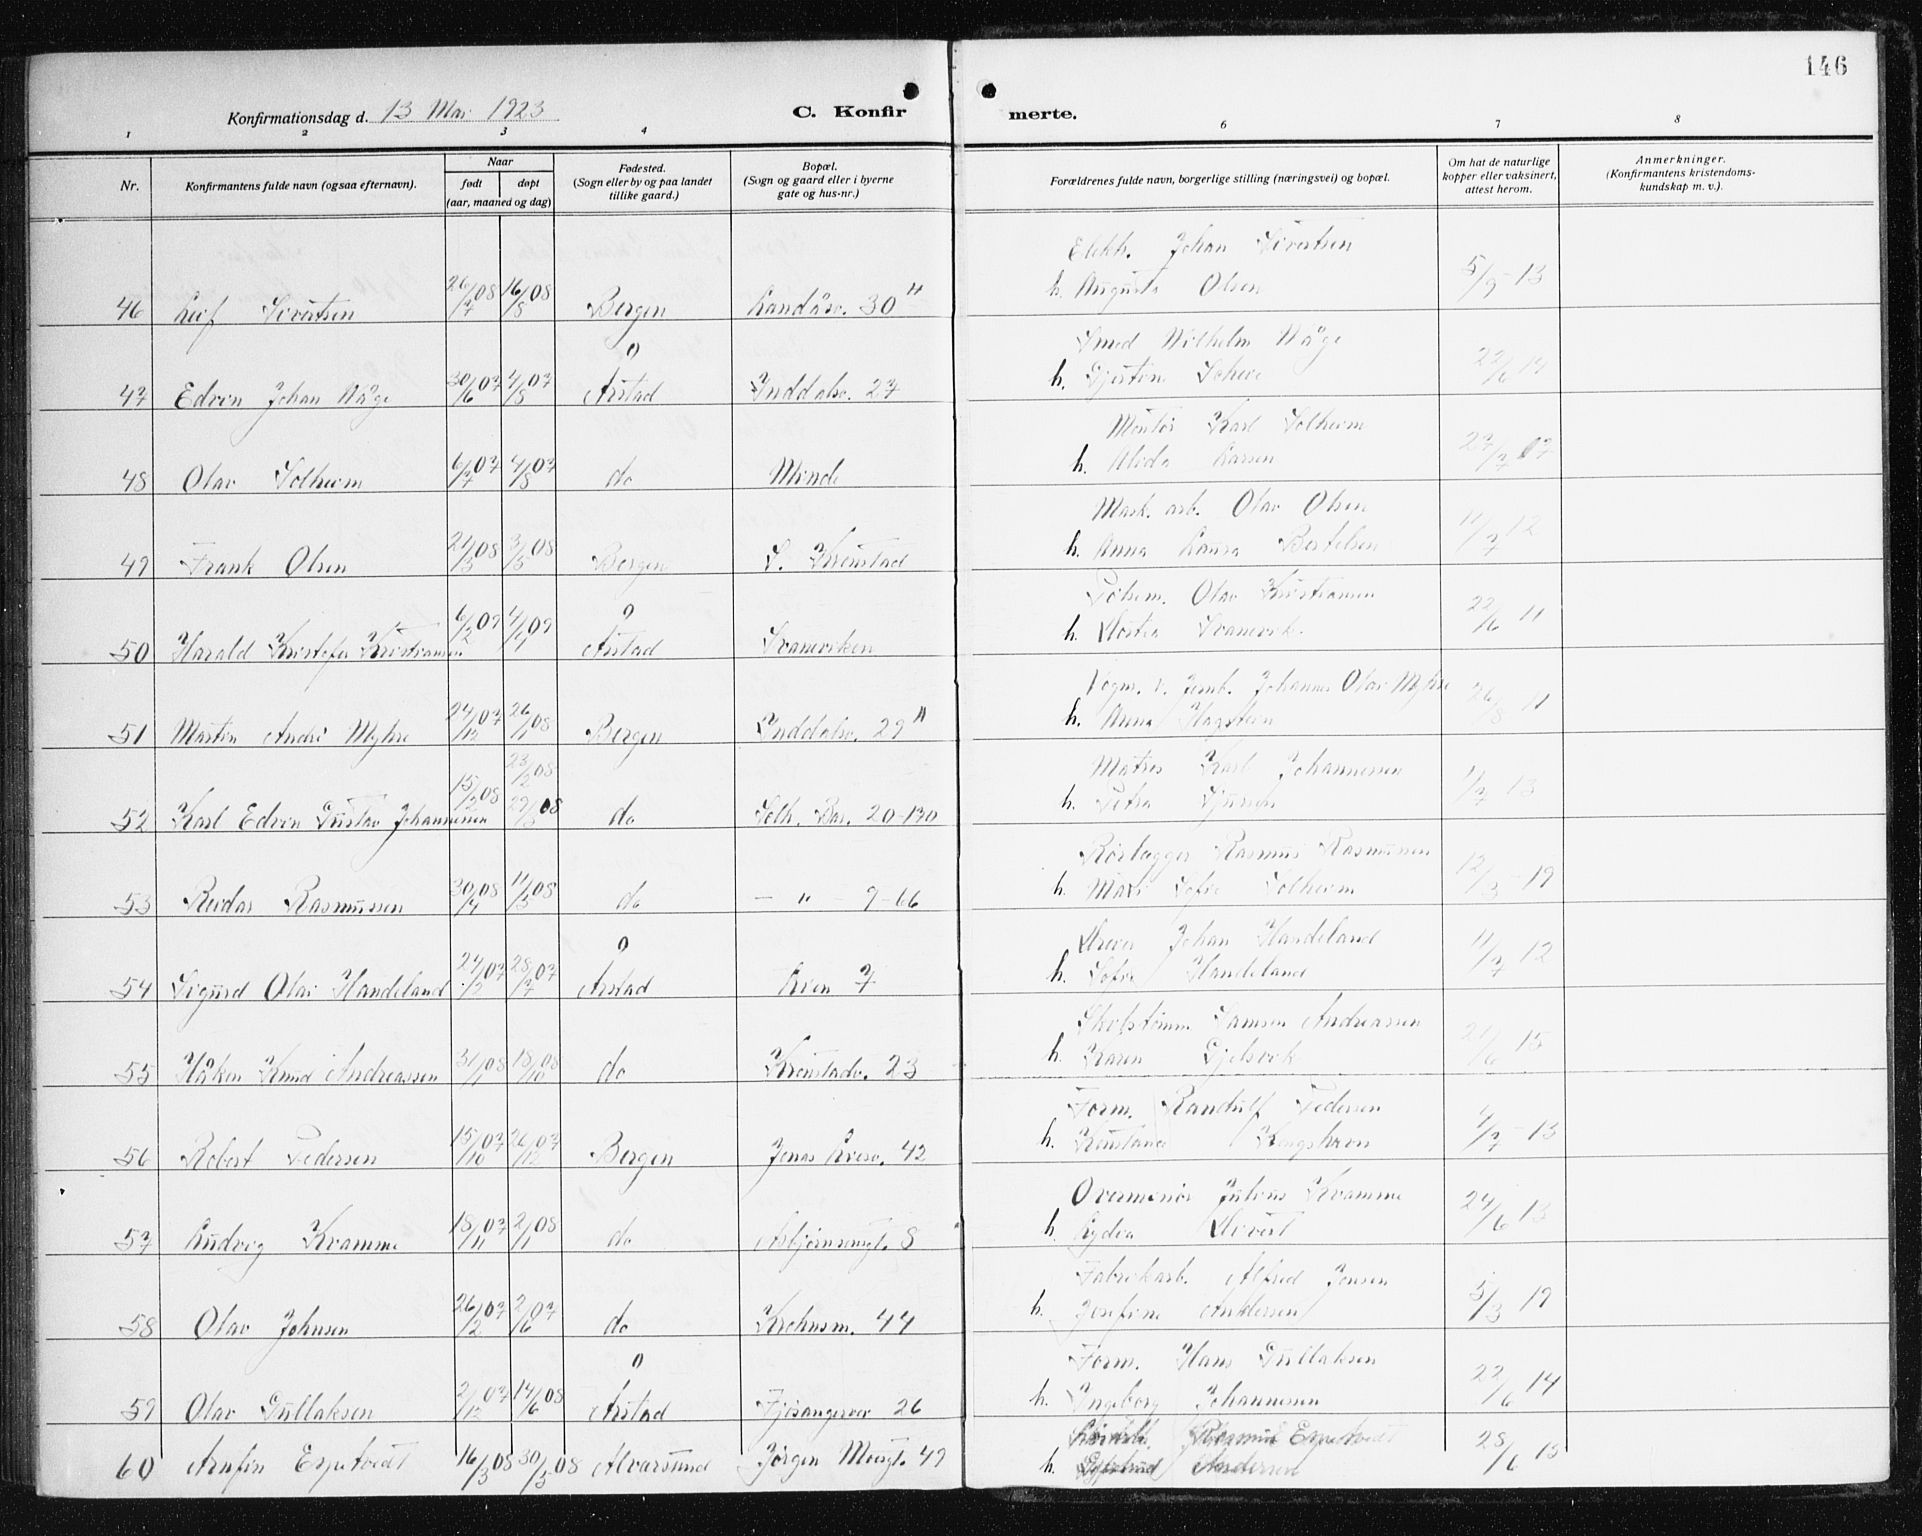 146
Konfirmationsdag d. 13 Mai 1923
C. Konfir
merte.
1 2 3 4 6 7 8
Nr.
Konfirmantens fulde navn (ogsaa efternavn).
Naar
født døpt
(aar, maaned og dag)
Fødested.
(Sogn eller by og paa landet
tillike gaard.)
Bopæl.
(Sogn og gaard eller i byerne
gate og hus-nr.)
Forældrenes fulde navn, borgerlige stilling (næringsvei) og bopæl.
Om hat de naturlige
kopper eller vaksinert,
attest herom.
Anmerkninger.
(Konfirmantens kristendoms-
kundskap m. v.).
Johan Sivertsen
46 Leif Sivertsen 26/7 08 16/8 08 Bergen Landåsv. 30 h. Augusta Olsen 5/9-13
Smed Wilhelm Våge
47 Edvin Johan Våge 30/6 07 4/8 07 Årstad Inddalsv. 27 h. 22/6 14
Montør Karl Solheim
48 Olav Solheim 6/7 07 4/8 07 do Minde h. Alida Larsen
Mask. arb. Olav Olsen
49 Frank Olsen 08 08 Bergen S. Kronstad h. Anna Laura Bertelsen 11/7 12
Olav Kristiansen
50 Harald Kristofer Kristiansen 6/2 09 4/4 09 Årstad Svaneviken h. Svanevik 22/6 11
Vogm. v. Jernb. Johannes Olav Myhre
51 Martin André Myhre 24/12 07 26/1 08 Bergen Inddalsv. 29 A h. Anna Hagsteen 26/8 11
Matros Karl Johannessen
23/2 08
52 Karl Edvin Gustav Johannessen 15/2 08 29/3 08 do Solh. Bar. 20-130 h. Petra 13
Rørlægger Rasmus Rasmussen
53 Reidar Rasmussen 08 08 do - " - 9-66 h. Mari Sofie Solheim 12/3-19
Johan Handeland
54 Sigurd Olai Handeland 07 28/7 07 Årstad Lien 7 h. Sofie Handeland 11/7 12
Samson Andreassen
55 Håkon Knud Andreassen 31/1 08 18/10 08 do Kronstadv. 23 h. Karen Gjelsvik 15
Form. Randulf Pedersen
56 Robert Pedersen 15/10 07 26/12 07 Bergen Jonas Liesv. 42 h. Konstance Kongshavn -13
Overminør Julius Kvamme
57 Ludvig Kvamme 18/11 07 2/1 08 do Asbjørnsensgt. 8 h. Lydia 24/6 13
Fabrikarb. Alfred Jensen
58 Olav Johnsen 26/2 07 2/6 07 do Krohnsm. 44 h. Josefine Andersen 5/3 19
Form. Hans Gullaksen
59 Olav Gullaksen 2/12 07 14/6 08 Årstad Fjøsangervei 26 h. Ingeborg Johannesen 22/6 14
Rasmus Espetvedt
60 Arnfin Espetvedt 16/3 08 30/5 08 Alvarsund Jørgen Moegt. 49 h. Andersen 28/6 15